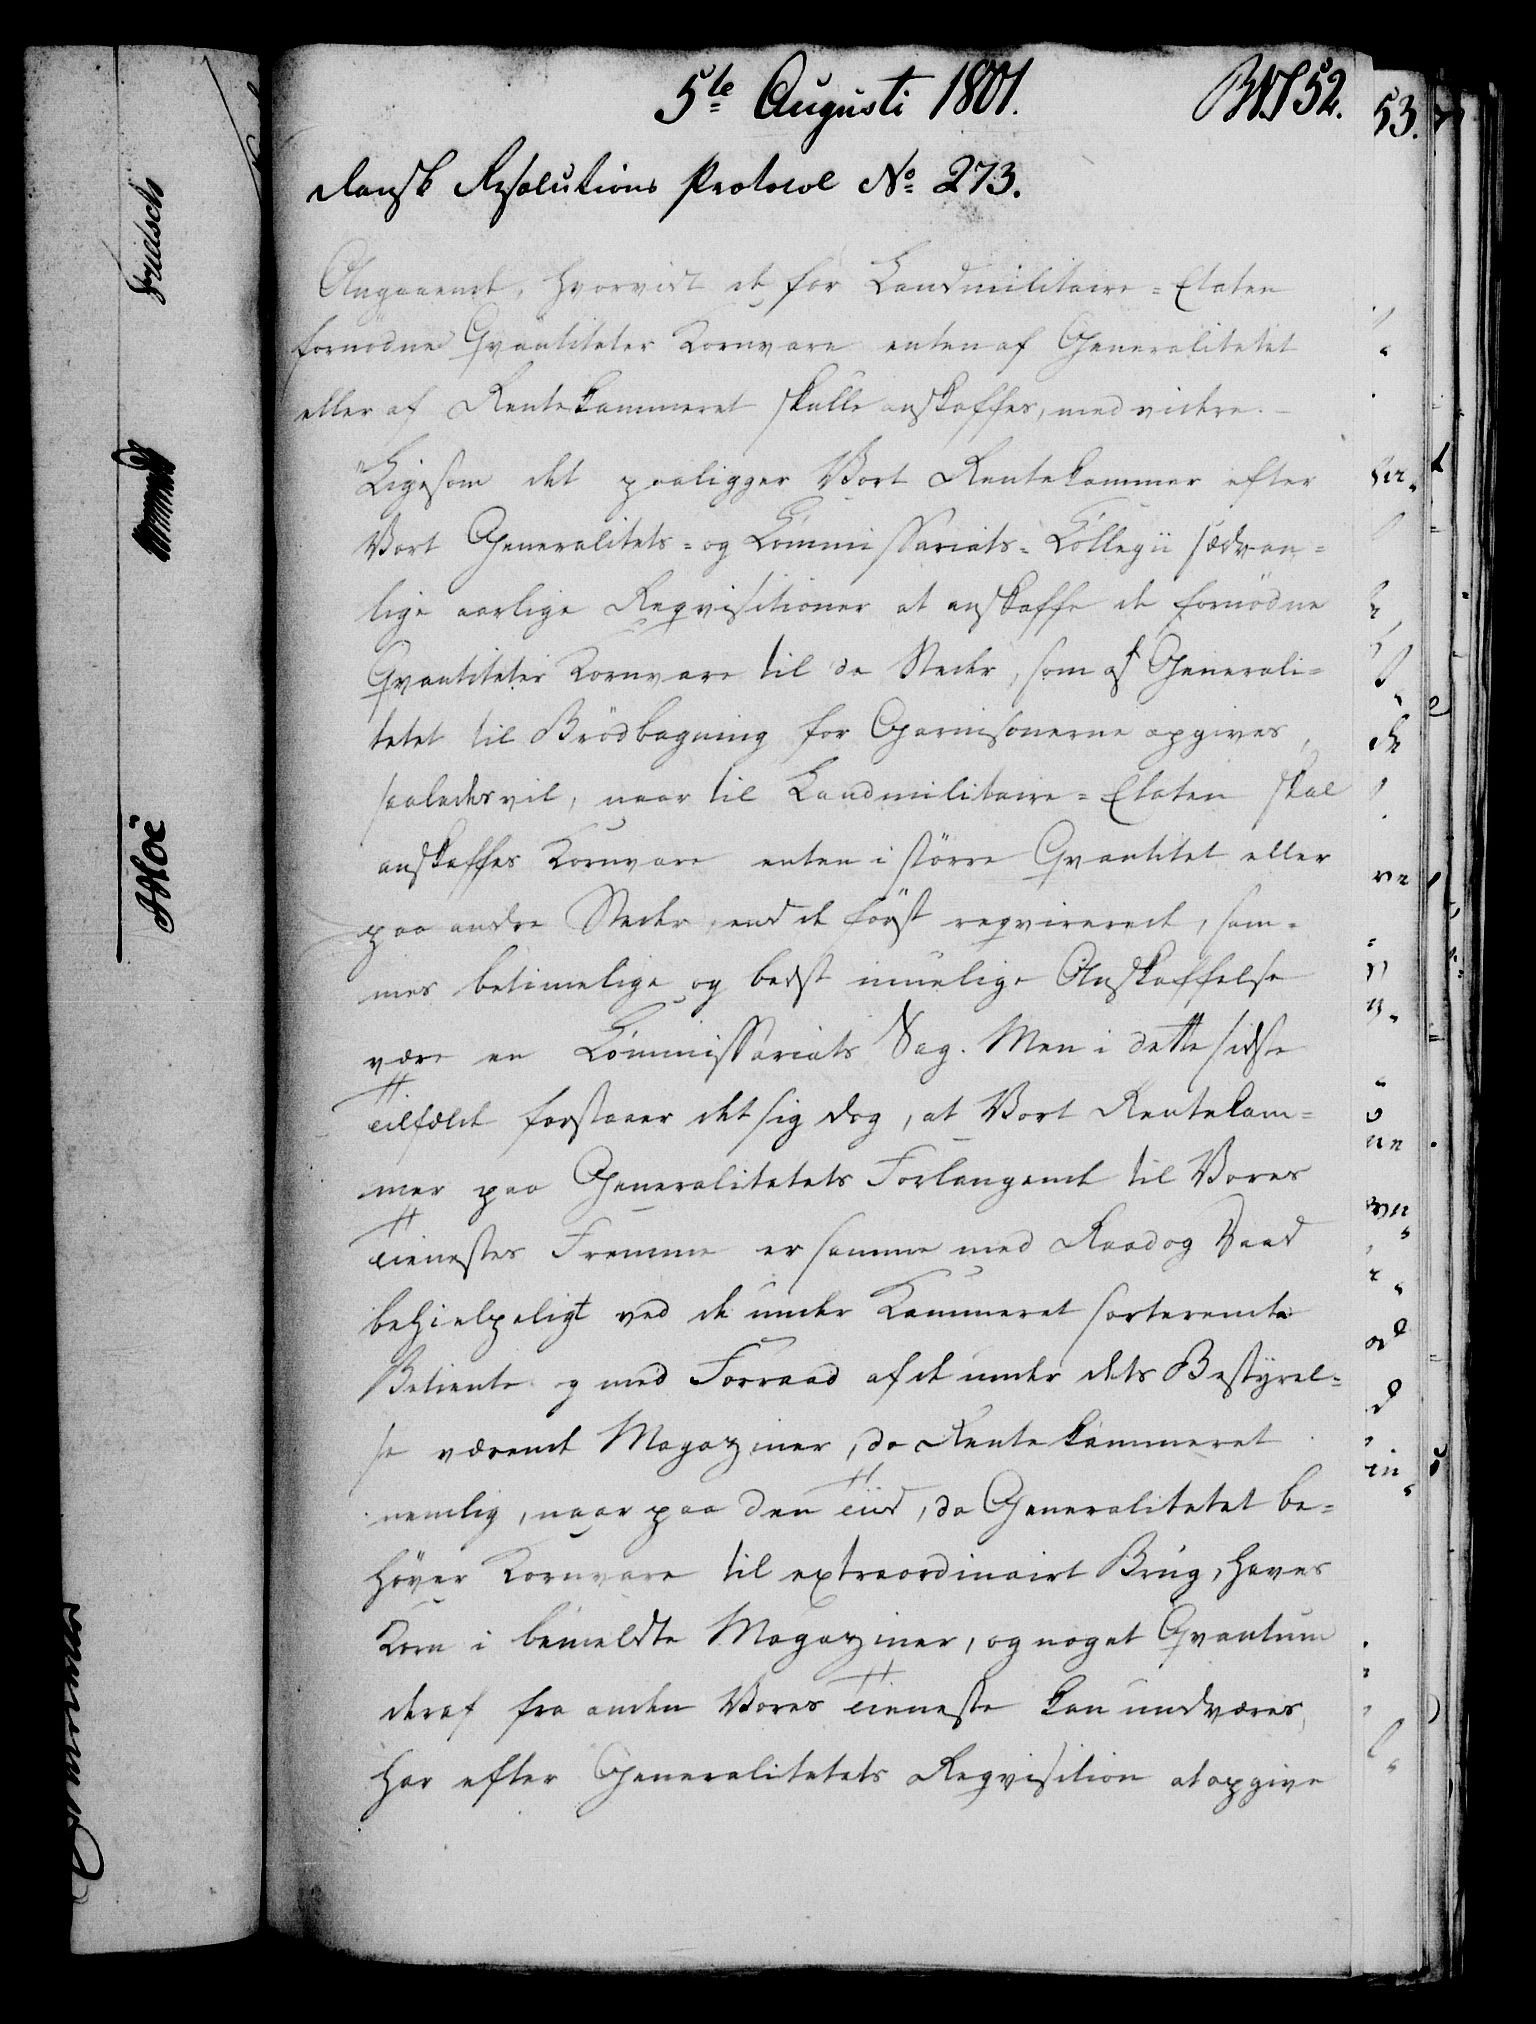 5te Augusti 1801.
No 52.
53.
Dansk Resolutions Protocol No 273.
Angaaende, hvorvidt de for Landmilitaire-Etaten
fornödne Qvantiteter Kornvare enten af Generalitetet
eller af Rentekammeret skulle anskaffes, med videre.
"Ligesom det paaligger Vort Rentekammer efter
Vort Generalitets- og Commissariats-Collegii sædvan-
lige aarlige Reqvisitioner at anskaffe de fornödne
Qvantiteter Kornvare til de Steder, som af Generali-
tetet til Brödbagning for Garnisonerne opgives,
saaledes vil, naar til Landmilitaire-Etaten skal
anskaffes Kornvare enten i större Qvantitet eller
paa andre Steder, end de först reqvirerede, sam-
mes betimelige og bedst muelige Anskaffelse
være en Commissariats Sag. Men i dette sidste
Tilfælde forstaaer det sig dog, at Vort Rentekam-
mer paa Generalitetets Forlangende til Vores
Tienestes Fremme er samme med Raad og Daad
behielpeligt ved de under Kammeret sorterende
Betiente og med Forraad af de under dets Bestyrel-
se værende Magaziner, da Rentekammeret
nemlig, naar paa den Tiid, da Generalitetet be-
höver Kornvare til extraordinairt Brug, haves
Korn i bemeldte Magaziner, og noget Qvantum
deraf fra anden Vores Tieneste kan undværes,
har efter Generalitetets Reqvisition at opgive